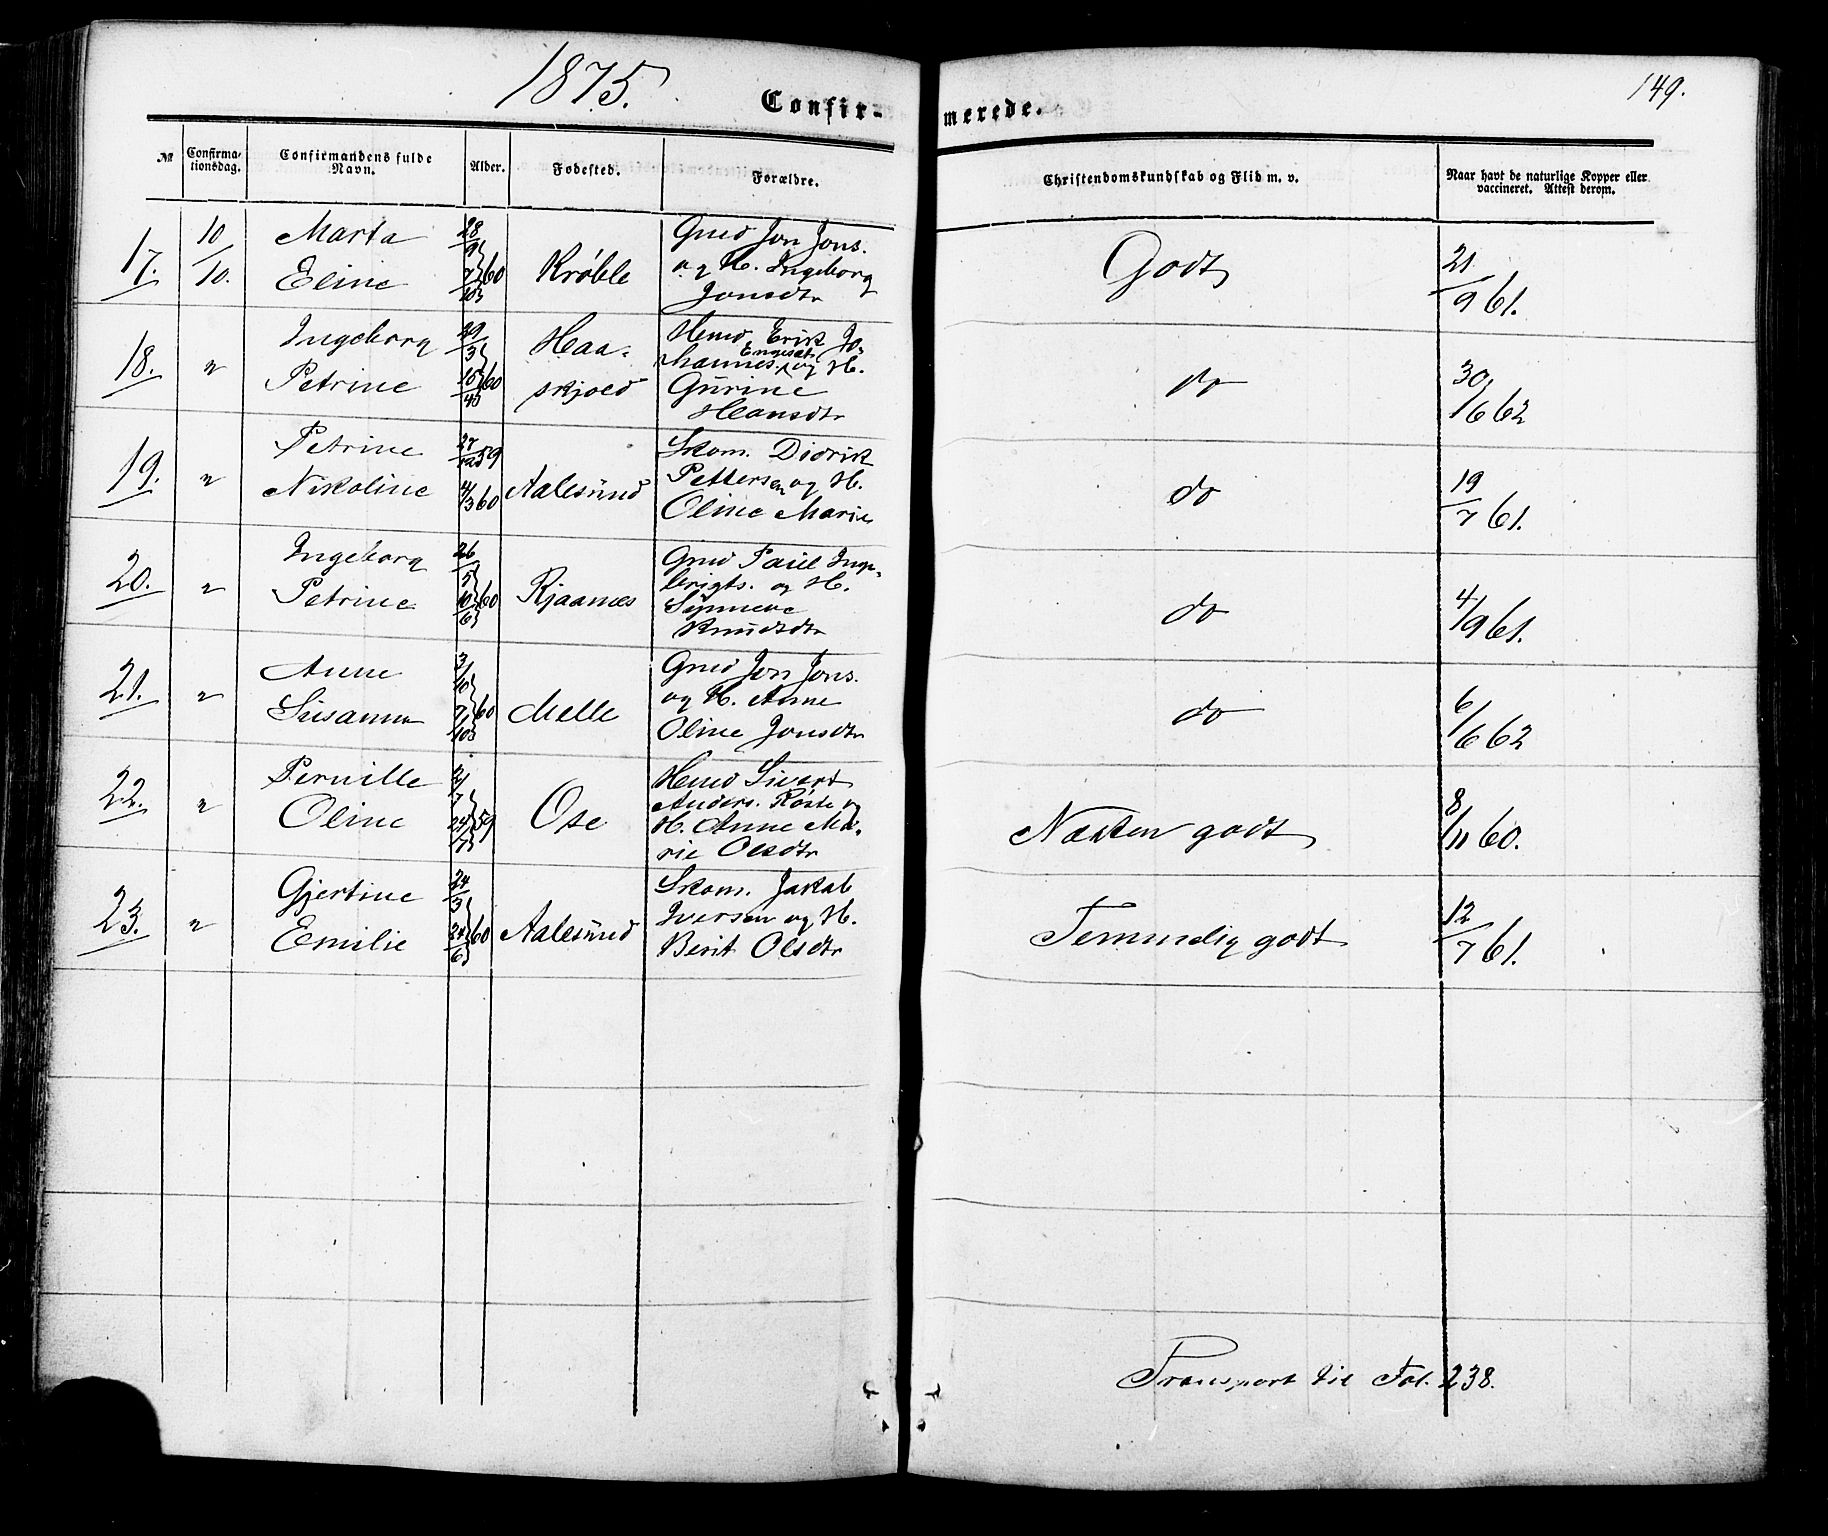 1875.
149.
Confir-
merede.
№
Confirma-
tionsdag.
Confirmandens fulde
Navn.
Alder.
Fødested.
Forældre.
Christendomskundskab og Flid m. v.
Naar havt de naturlige Kopper eller
vaccineret. Attest derom.
17. 10/10. Marta 28/9 Gmd Jon Jons.
Eline 7/10 60 Krøble og H. Ingeborg Godt 21/9 61.
Jonsdtr
18. " Ingeborg 29/3 Haa- Hmd. Erik Jo-
hannes. Engeset og H.
Petrine 60 skjold Gurine do 30/6 62
Hansdtr
19. " Petrine 27/12 59 Skom. Didrik
Nikoline 4/3 60 Aalesund Pettersen og H. do 19/7 61.
Oline Marie
20. " Ingeborg 26/5 Gmd Paul Inge-
brigts. og H.
Petrine 10/6 60 Kjaanæs Synneve do 4/9 61.
Knudsdtr
21. " Anne 3/10 Gmd Jon Jons.
og H. Anne
Susanna 7/10 60 Melle Oline Jonsdtr do 6/6 62
22. " Pernille Hmd Sivert
Anders. Røste og
Oline 24/7 59 Ose H. Anne Ma- Næsten godt 8/11 60.
rie Olsdtr
23. " Gjertine 24/3 Skom. Jakob
Iversen og H.
Emilie 24/6 60 Aalesund Berit Olsdtr Temmelig godt 12/7 61.
Transport til Fol. 238.